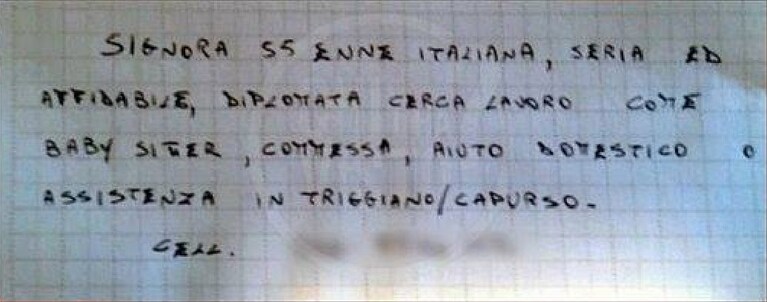 SIGNORA 55 ENNE ITALIANA, SERIA ED
AFFIDABILE, DIPLOMATA CERCA LAVORO COME
BABY SITTER, COMMESSA, AIUTO DOMESTICO O
ASSISTENZA IN TRIGGIANO/CAPURSO-
CELL.